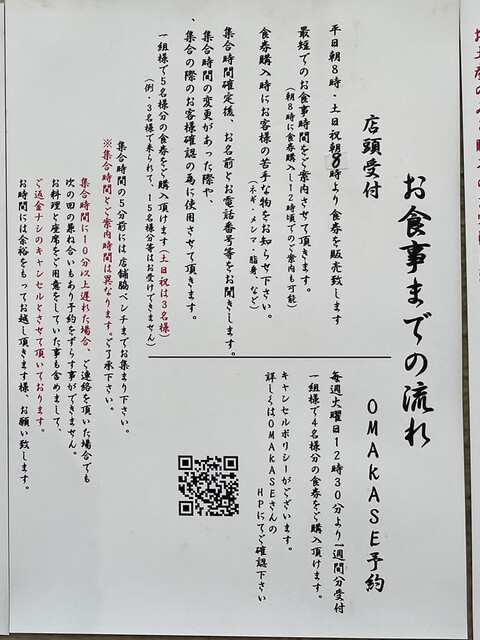 お食事までの流れ
店頭受付
平日朝8時・土日祝朝8時より食券を販売致します
最短でのお食事時間をご案内させて頂きます。
(朝8時に食券購入し12時頃でのご案内も可能)
食券購入時にお客様の苦手な物をお知らせ下さい。
(ネギ・メンマ・脂身 など)
集合時間確定後、お名前とお電話番号等をお聞きします。
集合時間の変更があった際や、
集合の際のお客様確認の為に使用させて頂きます。
一組様で5名様分の食券をご購入頂けます(土日祝は3名様)
(例・3名様で来られて、15名様分等はお受けできません)
OMAKASE予約
毎週火曜日12時30分より一週間分受付
一組様で4名様分の食券をご購入頂けます。
キャンセルポリシーがございます。
詳しくはOMAKASEさんの
HPにてご確認下さい
集合時間の5分前には店舗脇ベンチまでお集まり下さい。
※集合時間とご案内時間は異なります。ご了承下さい。
集合時間に10分以上遅れた場合、ご連絡を頂いた場合でも
次の回の兼ね合いもあり予約をずらす事ができません。
お料理と座席をご用意をしていた事も含めまして、
ご返金ナシのキャンセルとさせて頂いております。
お時間には余裕をもってお越し頂きます様、お願い致します。